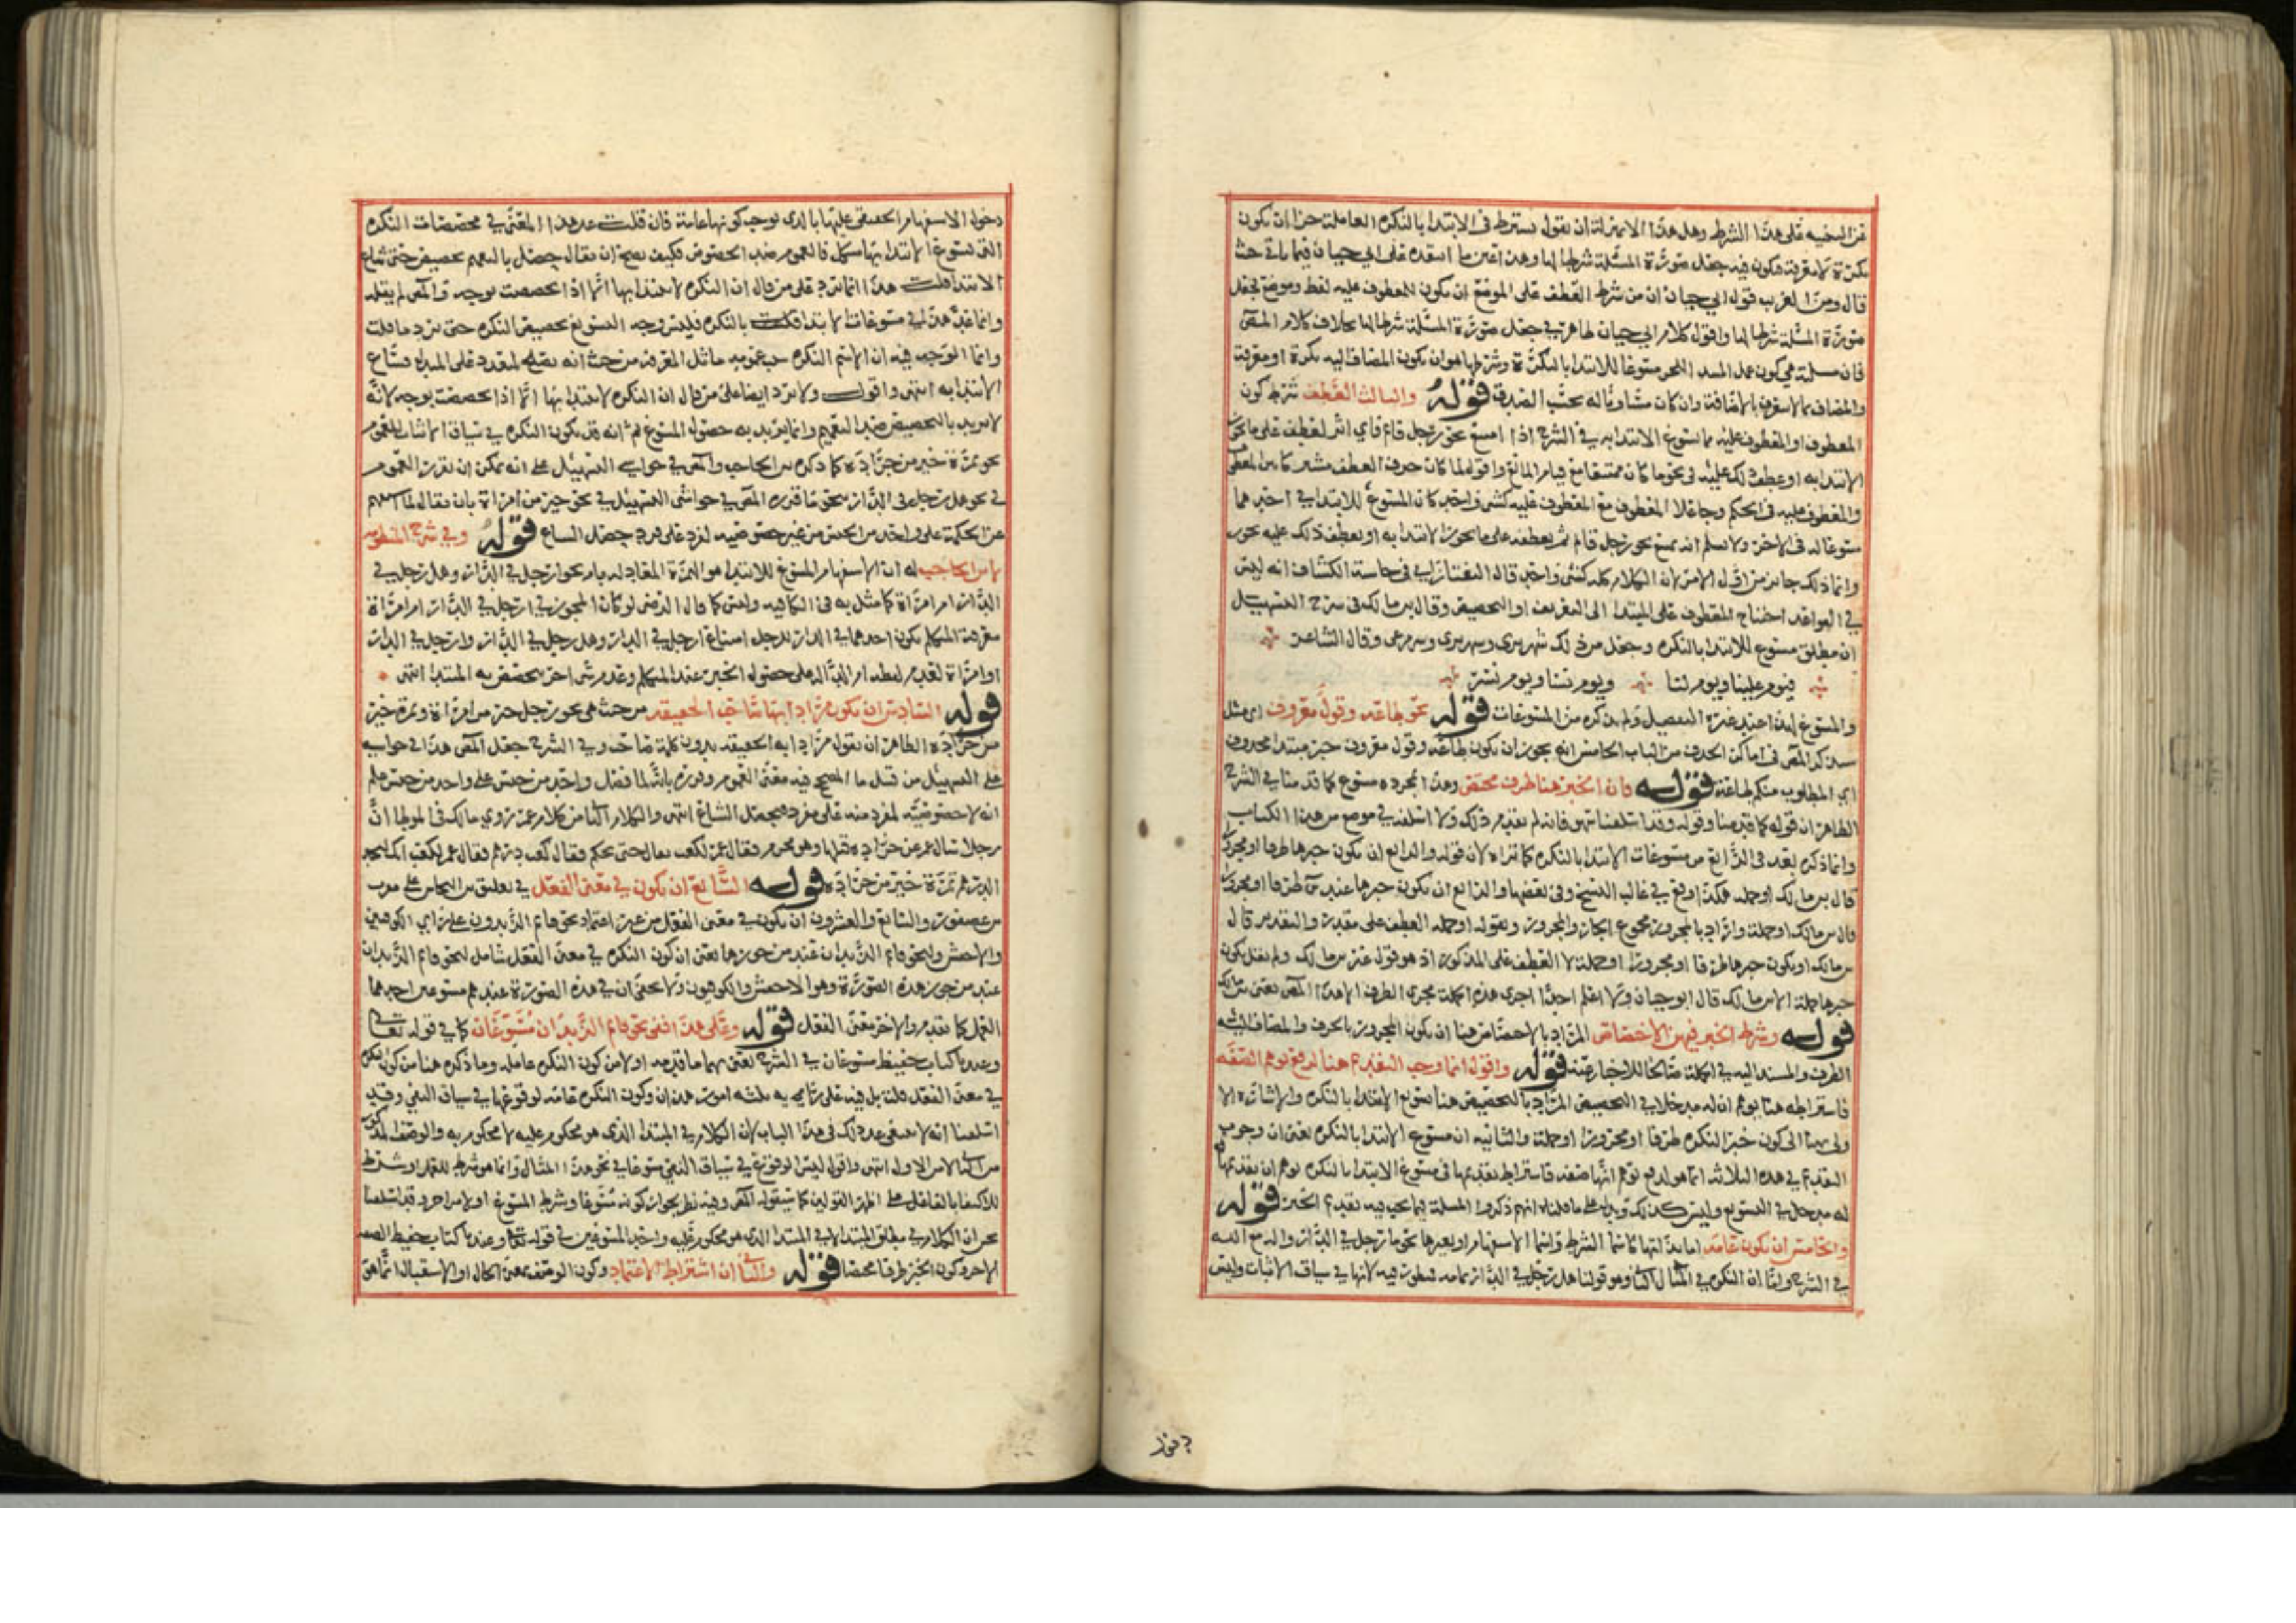 عن التنبيه على هذا الشرط وهل هذا الا بمنزلة ان نقول يشترط فى الابتدا بالنكره العاملة جزا ان يكون
نكرة لا معرفة فيكون فيه جعل صورة المسئلة شرطا لها وهذا عين ما انتقده على ابي حيان فيما ياتي حيث
قال ومن الغريب قول ابي حيان ان من شرط العطف على الموضع ان يكون للمعطوف عليه لفظ وموضع فجعل
صورة المسئلة شرطا لها واقول كلام ابي حيان ظاهر في جعل صورة المسئلة شرطا لها بخلاف كلام المص
فان مسئلته هي كون عمل المسند الجر مسوغا للابتدا بالنكرة وشرطها هو ان يكون المضاف اليه نكرة او معرفة
والمضاف مما لا يتعرف بالاضافة وان كان مساويا له بحسب الصدق قوله والثالث العطف بشرط كون
المعطوف او المعطوف عليه مما يسوغ الابتدا به في الشرح اذا امتنع نحو رجل قام فاي اثر لعطف على ما يجوز
الابتدا به او عطف ذلك عليه في نحو ما كان ممتنعا مع قيام المانع واقول لما كان حرف العطف مشركا بين المعطوف
والمعطوف عليه فى الحكم وجاعلا المعطوف مع المعطوف عليه كشى واحد كان المسوغ للابتدا في احدهما
مسوغا له فى الاخر ولا نسلم انه يمتنع نحو رجل قام ثم يعطف على ما يجوز الابتدا به او يعطف ذلك عليه يجوز
وانما ذلك جائز من اول الامر لان الكلام كله كشئ واحد قال التفتازاني فى حاشية الكشاف انه ليس
في القواعد احتياج المعطوف على المبتدا الى التعريف او التخصيص وقال ابن مالك فى شرح التسهيل
ان مطلق مسوغ للابتدا بالنكره وجعل من ذلك شهر ثرى وشهر ترى وشهر مرعى وقال الشاعر
فيوم علينا ويوم لنا ويوم نساء ويوم نسر
والمسوغ لهذا عند غيره التفصيل ولم يذكره من المسوغات قوله نحو طاعة وقول معروف اي مثل
سيذكر المص فى اماكن الحذف من الباب الخامس انه يجوز ان يكون طاعة وقول معروف خبر مبتدا محذوف
اي المطلوب منكم طاعة قوله فان الخبر هنا ظرف مختص وهذا بمجرده مسوغ كما قدمنا في الشرح
الظاهر ان قوله كما قدمنا وقوله وقد اسلفنا سهو فانه لم يقدم ذلك ولا اسلفه في موضع من هذا الكتاب
وانما ذكره بعد فى الرابع من مسوغات الابتدا بالنكره كما تراه لان قوله والرابع ان يكون خبرها ظرفا او مجرورا
قال ابن مالك او جمله هكذا وقع في غالب النسخ وفى بعضها والرابع ان يكون خبرها عند س ظرفا او مجرورا
قال ابن مالك او جملة واراد بالمجرور مجموع الجار والمجرور وبقوله او جمله العطف على مقدر والتقدير قال
ابن مالك او يكون خبرها ظرفا او مجرورا او جملة لا العطف على المذكور اذ هو قول غير ابن مالك ولم يقل بكون
خبرها جملة الا ابن مالك قال ابو حيان ولا اعلم احدا اجرى هذه الجملة مجرى الظرف الا هذا المص يعنى ابن مالك
قوله وشرط الخبر فيهن الاختصاص المراد بالاختصاص هنا ان يكون المجرور بالحرف والمضاف اليه
الظرف والمسند اليه في الجملة صالحا للاخبار عنه قوله واقول انما وجب التقديم هنا لدفع توهم الصفة
فاشتراطه هنا يوهم ان له مدخلا في التخصيص المراد بالتخصيص هنا تسويغ الابتدا بالنكره والاشاره الا
ولى بهنا الى كون خبر النكره ظرفا او مجرورا او جملة والثانيه ان مسوغ الابتدا بالنكره يعنى ان وجوب
التقديم في هذه الثلاثة انما هو لدفع توهم انها صفه فاشتراط تقديمها فى مسوغ الابتدا بالنكره يوهم ان تقديمها
له مدخل في التسويغ وليس كذلك ويدل على ما قلناه انهم ذكروا المسئلة فيما يجب فيه تقديم الخبر قوله
والخامس ان يكون عامة اما بذاتها كاسما الشرط واسما الاستفهام او بغيرها نحو ما رجل في الدار
في الشرح ولنا ان النكره في المثال الثانى وهو قولنا هل رجل في الدار عامه منظور فيه لانها في سياق الاثبات وليس
دخول
دخول الاستفهام الحقيقي عليها بالذى يوجب كونها عامة فان قلت عد هذا المعنى في مخصصات النكره
التى يسوغ الابتدا بها مشكل فالعموم ضد الخصوص فكيف يصح ان يقال حصل بالتعميم تخصيص حتى ساغ
الابتدا قلت هذا انما يرد على من قال ان النكره لا يبتدا بها الا اذا تخصصت بوجه والمص لم يقله
وانما عد هذا في مسوغات الابتدا بالنكره فليس وجه التسويغ تخصيص النكره حتى يرد ما قلت
وانما الوجه فيه ان الاسم النكره حيث عمومه ماثل المعرفة من حيث انه يصلح لمتعدد على البدل فساغ
الابتدا به انتهى واقول ولا يرد ايضا على من قال ان النكره لا يبتدا بها الا اذا تخصصت بوجه لانه
لا يريد بالتخصيص ضد التعميم وانما يريد به حصول المسوغ ثم انه قد يكون النكره في سياق الاثبات للعموم
نحو تمرة خير من جرادة كما ذكره ابن الحاجب والمص في حواشي التسهيل على انه يمكن ان يقرر العموم
في نحو هل رجل فى الدار بنحو ما قرره المص في حواشي التسهيل في نحو خير من امراة بان يقال لما استفهم
عن الحكم على واحد من الجنس من غير خصوصيه لفرد على فرد حصل الشياع قوله وفي شرح المنظومة
لابن الحاجب له ان الاستفهام المسوغ للابتدا هو الهمزة المعادله بام نحو ارجل في الدار وهل رجل في
الدار ام امراة كما مثل به فى الكافيه وليس كما قال الرضى لو كان المجوز في ارجل في الدار ام امراة
معرفة المتكلم بكون احدهما في الدار للرجل امتناع ارجل في الدار وهل رجل في الدار وارجل في الدار
او امراة لعدم لفظه ام الدالة على حصول الخبر عند المتكلم وعدم شى اخر يتخصص به المبتدا انتهى
قوله السادس ان يكون مرادا بها صاحب الحقيقه من حيث هى نحو رجل خير من امراة وتمرة خير
من جرادة الظاهر ان يقول مرادا به الحقيقه بدون كلمة صاحب وفي الشرح جعل المص هذا في حواشيه
على التسهيل من قبيل ما المصحح فيه معنى العموم وقرره بانه لما فضل واحد من جنس على واحد من جنس علم
انه لا خصوصيه لفرد منه على فرد فيحصل الشياع انتهى والكلام الثانى من كلام عمر روي مالك فى الموطا ان
رجلا سال عمر عن جراده قتلها وهو محرم فقال عمر لكعب تعال حتى نحكم فقال كعب درهم فقال عمر لكعب انك لتجد
الدراهم لتمرة خير من جرادة قوله السابع ان يكون في معنى الفعل في تعليق ابن النحاس على مقرب
ابن عصفور والسابع والعشرون ان يكون في معنى الفعل من غير اعتماد نحو قائم الزيدون على راي الكوفيين
والاخفش ولنحو قائم الزيدان عند من جوزها يعنى ان كون النكره في معنى الفعل شامل لنحو قائم الزيدان
عند من جوز هذه الصورة وهو الاخفش والكوفيون ولا يخفى ان في هذه الصورة عندهم مسوغين احدهما
العمل كما تقدم والاخر معنى الفعل قوله وعلى هذا ففى نحو قائم الزيدان مسوغان كما في قوله تعالى
وعندنا كتاب حفيظ مسوغان في الشرح يعنى بهما ما قدمه اولا من كون النكره عامله وما ذكره هنا من كونها
في معنى الفعل قلت بل فيه على رايهم ثلثه امور هذان وكون النكره عامة لوقوعها في سياق النفي وقد
اسلفنا انه لا ينبغى عد ذلك فى هذا الباب لان الكلام في المبتدا الذى هو محكوم عليه لا محكوم به والوصف المذكور
من الثانى لا من الاول انتهى واقول ليس الوقوع في سياق النفي مسوغا في نحو هذا المثال وانما هو شرط للعمل او شرط
للاكتفا بالفاعل على اظهر القولين كما سيقوله المص وفيه نظر بجواز كونه مسوغا وشرط المسوغ او لامر اخر وقد اسلفنا
نحن ان الكلام في مطلق المبتدا لا في المبتدا الذى هو محكوم عليه واحد المسوغين في قوله تعالى وعندنا كتاب حفيظ الصفه
الاخر وكون الخبر ظرفا مختصا قوله والثانى ان اشتراط الاعتماد وكون الوصف بمعنى الحال او الاستقبال انما هو